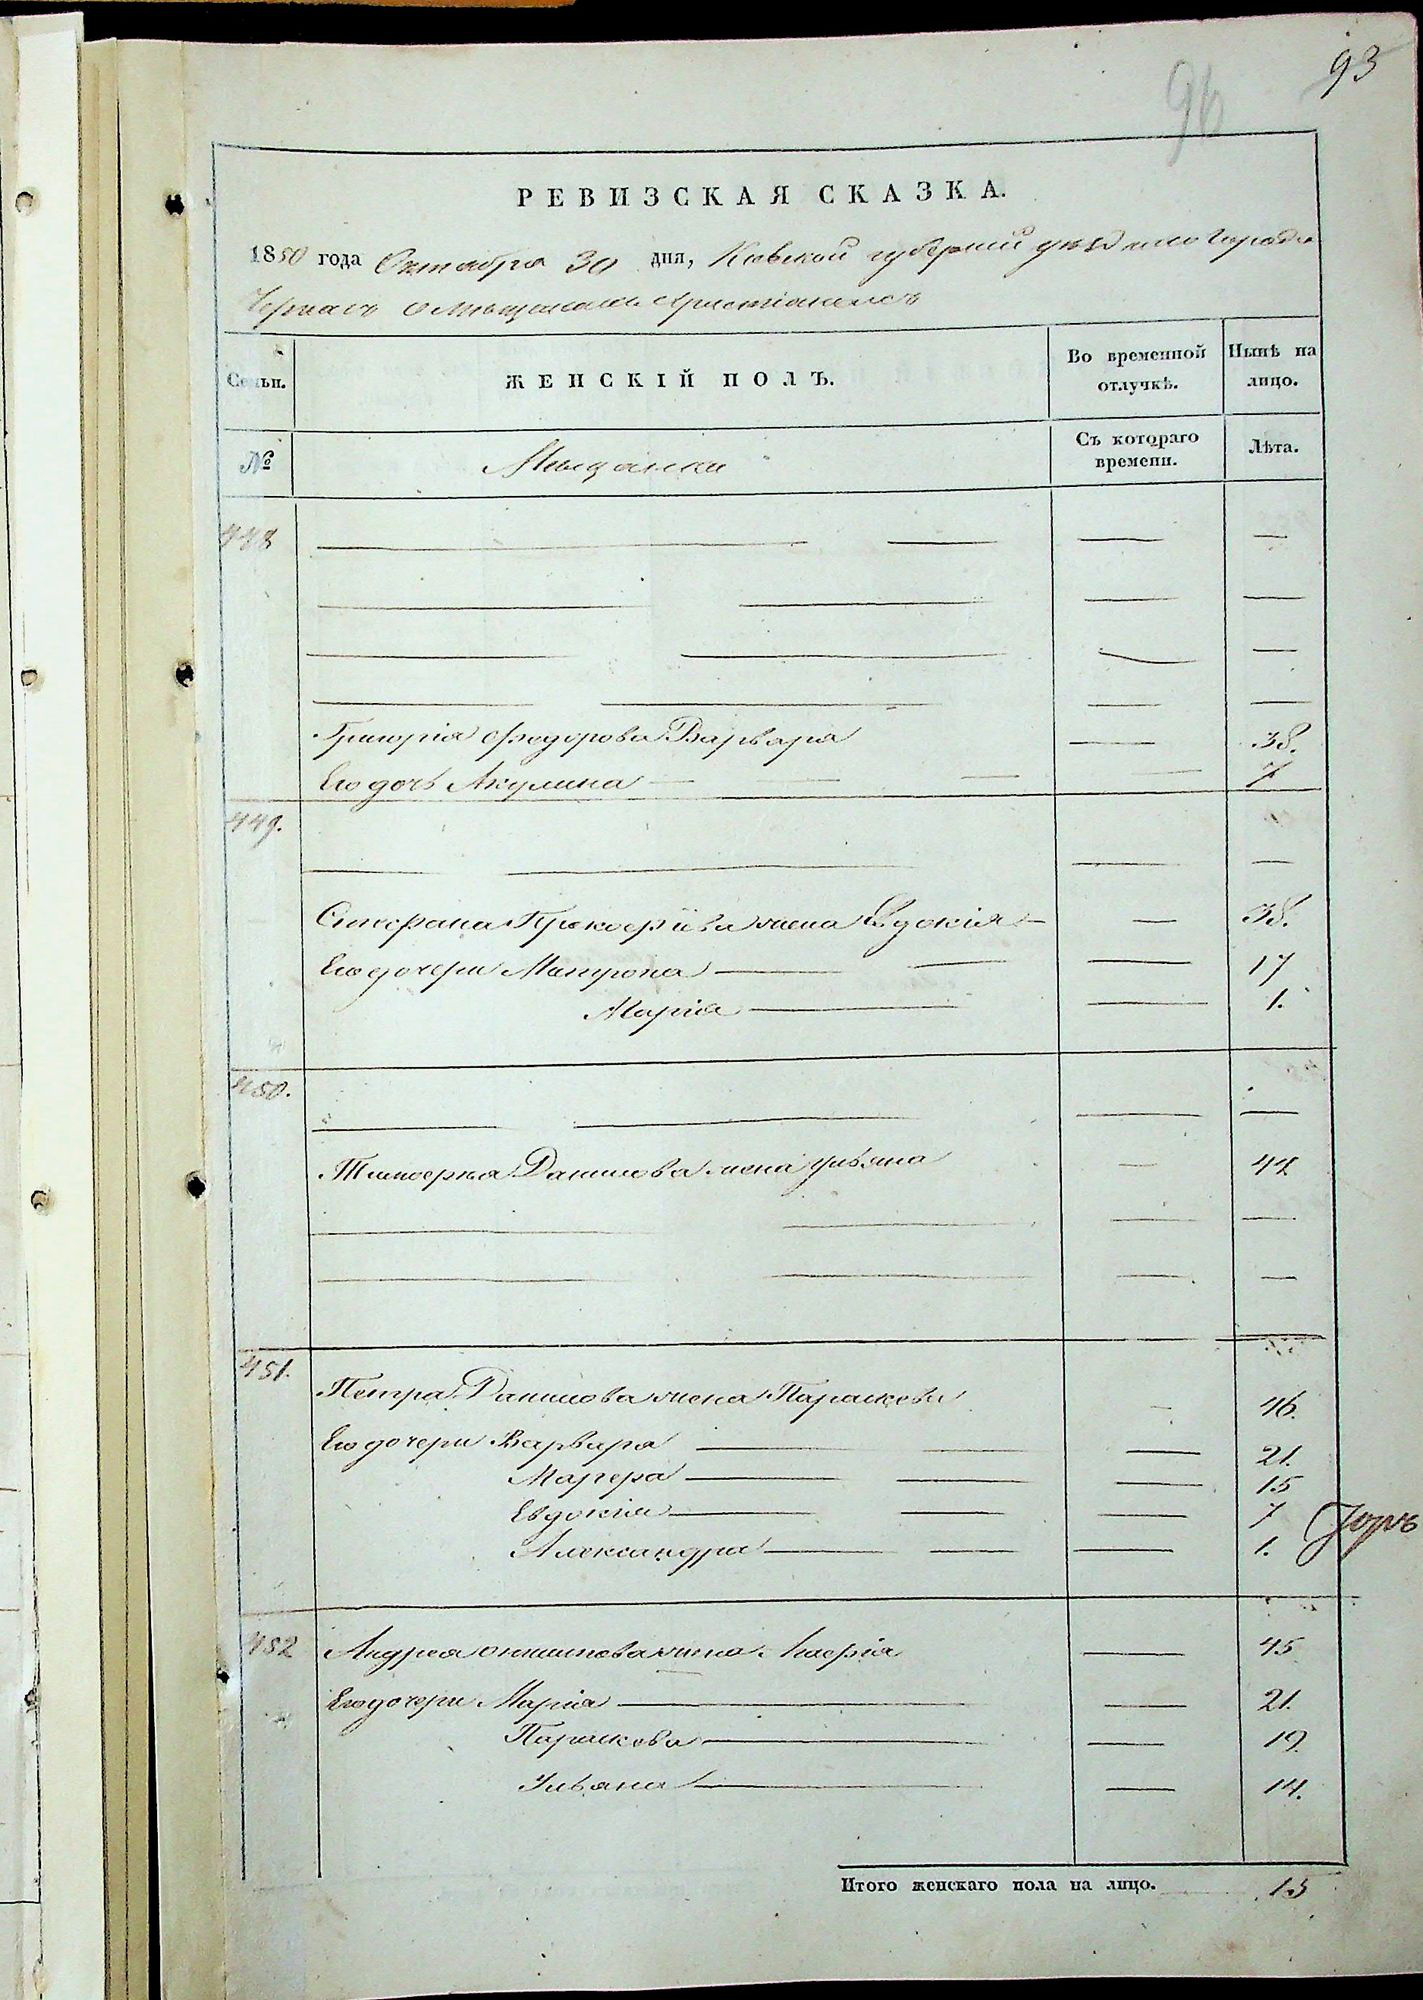 93
96
РЕВИЗСКАЯ СКАЗКА.
1850 года Октября 30 дня, Кіевской губерніи уѣзднаго города
Черкасъ о мѣщанахъ христіанахъ
Семьи. ЖЕНСКІЙ ПОЛЪ. Во временной отлучкѣ. Нынѣ на лицо.
№ Мѣщанки Съ котораго времени. Лѣта.
448
Григорія Федорова Варвара — 38.
Его дочь Акулина — 7
449.
Стефана Прокофіева жена Евдокія — 38.
Его дочери Матрона — 17
Марія — 1.
450.
Тимофея Данилова жена Ульяна — 44
451.
Петра Данилова жена Параскева — 46.
Его дочери Варвара — 21.
15
Евдокія — 7
Александра — 1.
452 Андрея жена — 45
Его дочери Марія — 21.
Параскева — 19.
Ульяна — 14.
Итого женскаго пола на лицо. 15